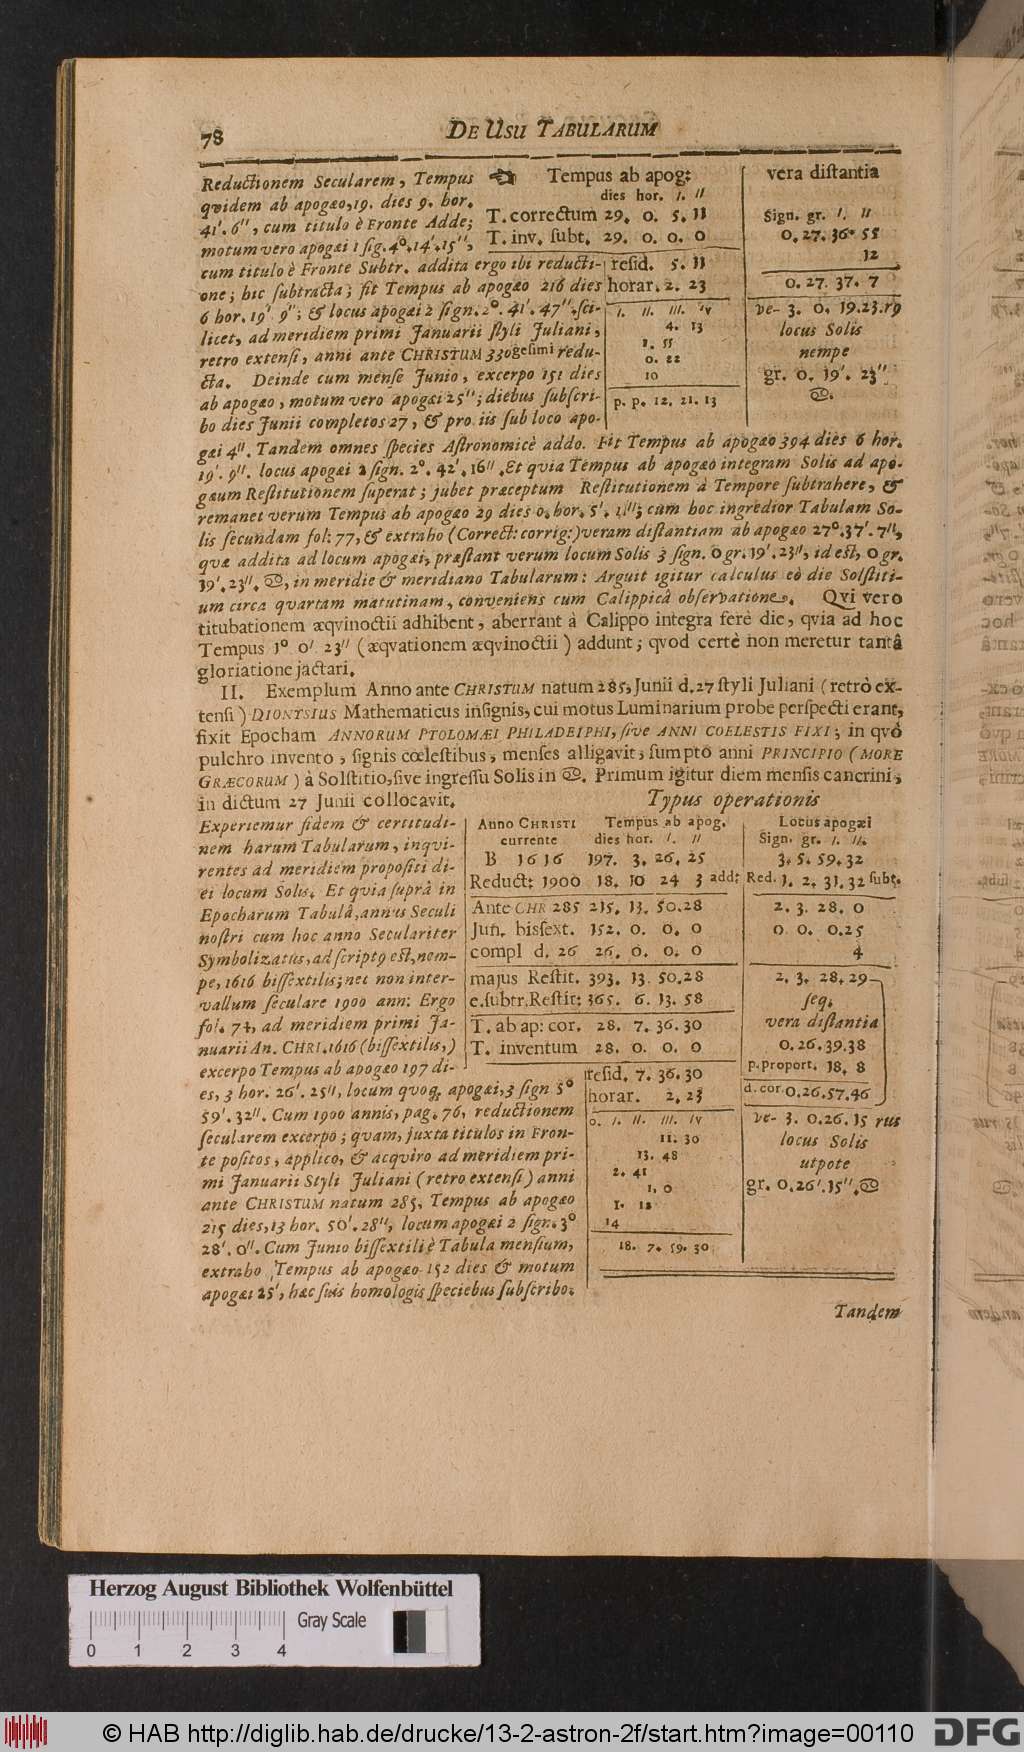 78
DE USU TABULARUM
Reductionem Secularem, Tempus
qvidem ab apogæo, 19. dies 9. hor.
41′. 6″, cum titulo è Fronte Adde;
motum vero apogæi 1 sig. 4°. 14′. 15″,
cum titulo è Fronte Subtr. addita ergo ibi reducti-
one; hic subtracta; fit Tempus ab apogæo 216 dies
6 hor. 19′ 9″; & locus apogæi 2 sign. 2°. 41′. 47″. sci-
licet, ad meridiem primi Januarii styli Juliani,
retro extensi, anni ante CHRISTUM 330gesimi redu-
cta. Deinde cum mense Junio, excerpo 151 dies
ab apogæo, motum vero apogæi 25″; diebus subscri-
bo dies Junii completos 27, & pro iis sub loco apo-
☞ Tempus ab apog:
dies hor. ′. ″
T. correctum 29. 0. 5. 11
T. inv. subt. 29. 0. 0. 0
resid. 5. 11
horar. 2. 23
I. II. III. IV
4. 13
1. 55
0. 22
10
p. p. 12. 21. 13
vera distantia
Sign. gr. ′. ″
0. 27. 36. 55
12
0. 27. 37. 7
ve- 3. 0. 19. 23. rg
locus Solis
nempe
gr. 0. 19′. 23″
♋.
gæi 4″. Tandem omnes species Astronomicè addo. Fit Tempus ab apogæo 394 dies 6 hor.
19′. 9″. locus apogæi 2 sign. 2°. 42′. 16″. Et qvia Tempus ab apogæo integram Solis ad apo-
gæum Restitutionem superat; jubet præceptum Restitutionem à Tempore subtrahere, &
remanet verum Tempus ab apogæo 29 dies 0. hor. 5′. 11″; cum hoc ingredior Tabulam So-
lis secundam fol: 77, & extraho (Correct: corrig:) veram distantiam ab apogæo 27°. 37′. 7″,
quæ addita ad locum apogæi, præstant verum locum Solis 3 sign. 0 gr. 19′. 23″, id est, 0 gr.
19′. 23″. ♋, in meridie & meridiano Tabularum: Arguit igitur calculus eò die Solstiti-
um circa quartam matutinam, conveniens cum Calippicâ observatione. Qvi vero
titubationem æqvinoctii adhibent, aberrant à Calippo integra ferè die, qvia ad hoc
Tempus 1° 0′ 23″ (æqvationem æqvinoctii) addunt; qvod certè non meretur tantâ
gloriatione jactari.
II. Exemplum Anno ante CHRISTUM natum 285, Junii d. 27 styli Juliani (retrò ex-
tensi) DIONYSIUS Mathematicus insignis, cui motus Luminarium probe perspecti erant,
fixit Epocham ANNORUM PTOLOMÆI PHILADELPHI, sive ANNI COELESTIS FIXI; in qvô
pulchro invento, signis cœlestibus, menses alligavit, sumpto anni PRINCIPIO (MORE
GRÆCORUM) à Solstitio, sive ingressu Solis in ♋. Primum igitur diem mensis cancrini,
in dictum 27 Junii collocavit.
Experiemur fidem & certitudi-
nem harum Tabularum, inqvi-
rentes ad meridiem propositi di-
ei locum Solis. Et quia suprà in
Epocharum Tabulâ, annus Seculi
nostri cum hoc anno Seculariter
Symbolizatus, adscriptq est, nem-
pe, 1616 bissextilis; nec non inter-
vallum seculare 1900 ann: Ergo
fol. 74, ad meridiem primi Ja-
nuarii An. CHRI. 1616 (bissextilis,)
excerpo Tempus ab apogæo 197 di-
es, 3 hor. 26′. 25″, locum quoq, apogæi, 3 sign 5°
59′. 32″. Cum 1900 annis, pag. 76, reductionem
secularem excerpo; quam, juxta titulos in Fron-
te positos, applico, & acquiro ad meridiem pri-
mi Januarii Styli Juliani (retro extensi) anni
ante CHRISTUM natum 285, Tempus ab apogæo
215 dies, 13 hor. 50′. 28″, locum apogæi 2 sign. 3°
28′. 0″. Cum Junio bissextili è Tabula mensium,
extraho Tempus ab apogæo 152 dies & motum
apogæi 25′, hæc suis homologis speciebus subscribo.
Typus operationis
Anno CHRISTI Tempus ab apog. Locus apogæi
currente dies hor. ′. ″ Sign. gr. ′. ″.
B 1616 197. 3. 26. 25 3. 5. 59. 32
Reduct: 1900 18. 10 24 3 add: Red. 1. 2. 31. 32 subt.
Ante CHR 285 215. 13. 50. 28 2. 3. 28. 0
Jun. bissext. 152. 0. 0. 0 0 0. 0. 25
compl d. 26 26. 0. 0. 0 4
majus Restit. 393. 13. 50. 28 2. 3. 28. 29
e. subtr. Restit: 365. 6. 13. 58 seq.
T. ab ap: cor. 28. 7. 36. 30 vera distantia
T. inventum 28. 0. 0. 0 0. 26. 39. 38
resid. 7. 36. 30 p. proport. 18. 8
horar. 2. 23 d. cor. 0. 26. 57. 46
0. I. II. III. IV
11. 30
13. 48
2. 41
1. 0
1. 12
14
18. 7. 59. 30
ve- 3. 0. 26. 15 rus
locus Solis
utpote
gr. 0. 26′. 15″. ♋
Tandem
Herzog August Bibliothek Wolfenbüttel
Gray Scale
0 1 2 3 4
© HAB http://diglib.hab.de/drucke/13-2-astron-2f/start.htm?image=00110
DFG